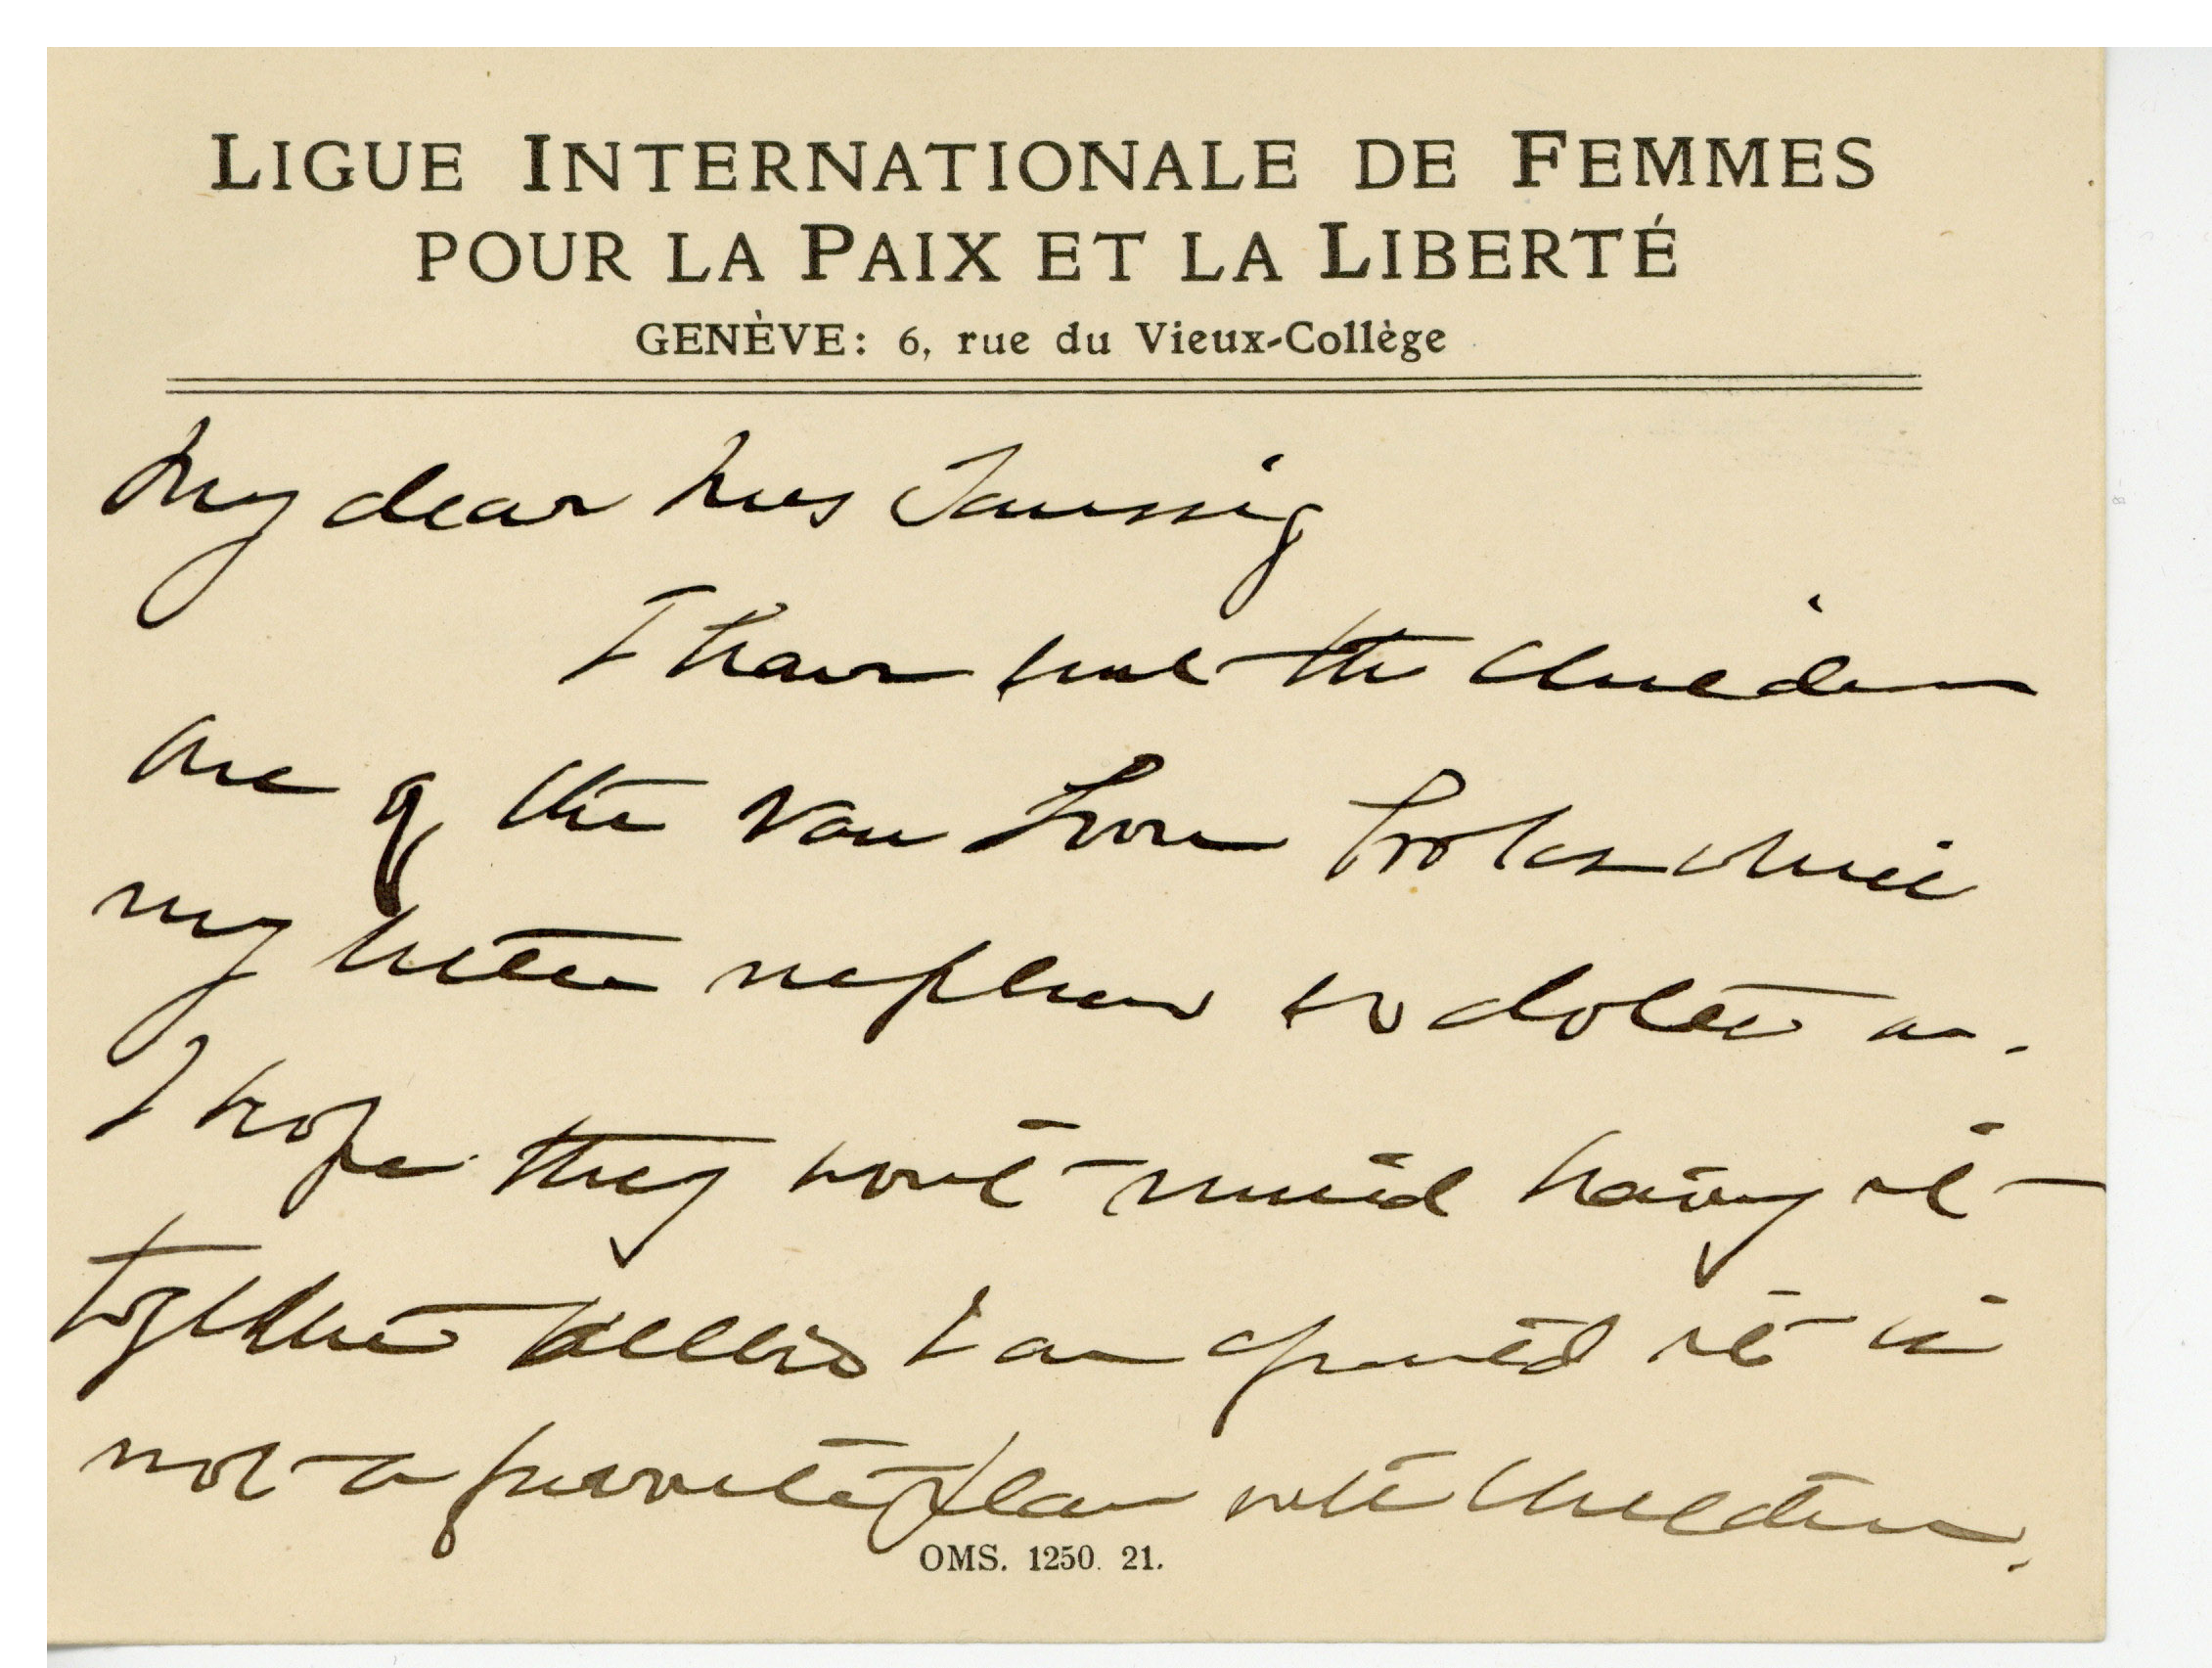 LIGUE INTERNATIONALE DE FEMMES
POUR LA PAIX ET LA LIBERTÉ
GENÈVE: 6, rue du Vieux-Collège
My dear Mrs Taussig
I have sent the children
one of the Van Loon books which
my little nephew so dotes on.
I hope they won't mind having it
together I am afraid it is
not a favorite plan with children.
OMS. 1250. 21.